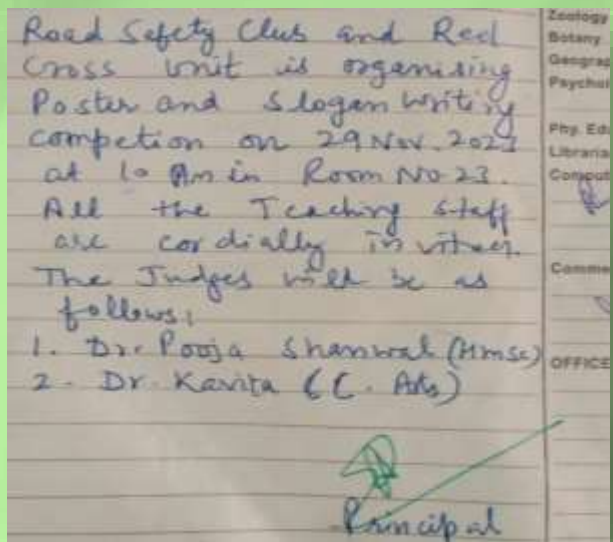 Road Safety Club and Red
Cross Unit is organising
Poster and Slogan Writing
Competion on 29 Nov. 2023
at 10 Am in Room No 23.
All the Teaching staff
are cordially invited.
The Judges will be as
follows:
1. Dr. Pooja Shanwal (Hmsc)
2. Dr. Kavita (C. Arts)
Principal
Zoology
Botany
Geograp
Psychol
Phy. Ed
Libraria
Comput
Comme
OFFICE